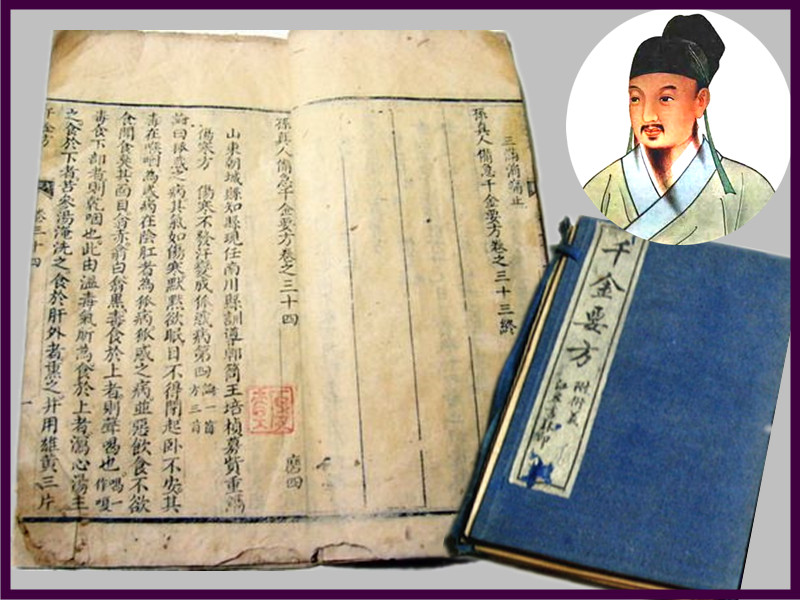 孫真人備急千金要方卷之三十三終
孫真人備急千金要方卷之三十四
山東朝城縣知縣現任南川縣訓導郭簡王培楨募貲重鐫
傷寒方 傷寒不發汗變成狐惑病第四 論一首 方三首
論曰狐惑之病其氣如傷寒默默欲眠目不得閉起卧不安其
毒在喉咽為惑病在陰肛者為狐病狐惑之病並惡飲食不欲
食聞食臭其面目翕赤翕白翕黑毒食於上者則聲喝也喝一作嗄
毒食下部者則乾咽也此由溫毒氣所為食於上者瀉心湯主
之食於下者苦參湯淹洗之食於肝外者熏之并用雄黃三片
千金方 卷三十四
千金要方
附衍義